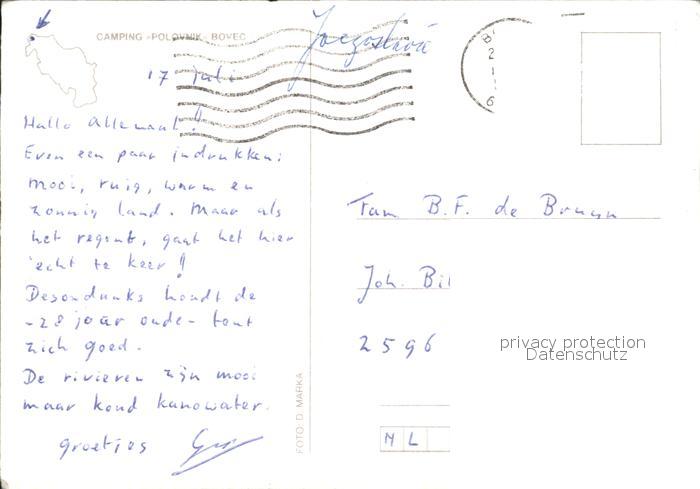 CAMPING "POLOVNIK" BOVEC
Joegoslavië
17 juli
Hallo allemaal!
Even een paar indrukken:
mooi, ruig, warm en
zonnig land. Maar als
het regent, gaat het hier
echt te keer!
Desondanks houdt de
-28 jaar oude- tent
zich goed.
De rivieren zijn mooi
maar koud kanowater.
groetjes
FOTO: D. MARKA
Fam B.F. de Bruyn
Joh. Bil
2596
privacy protection
Datenschutz
NL